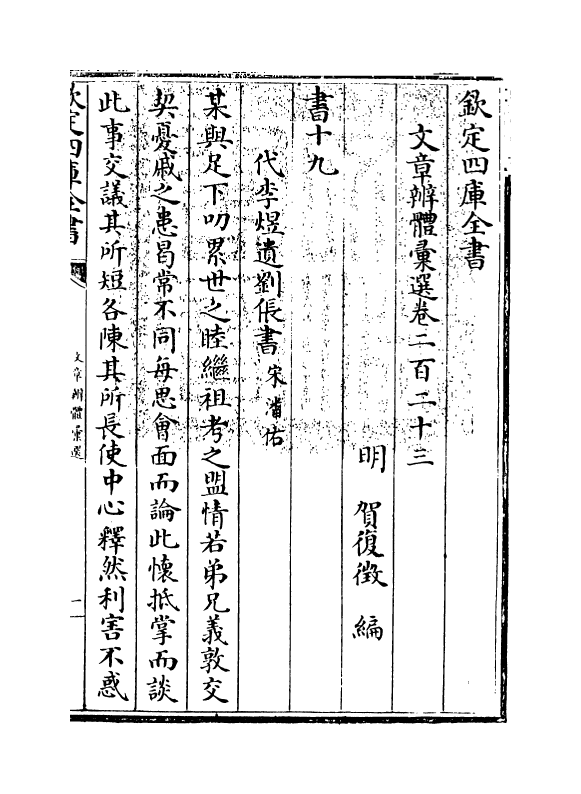 欽定四庫全書
文章辨體彙選卷二百二十三
明 賀復徵 編
書十九
代李煜遺劉倀書 宋潘佑
某與足下叨累世之睦繼祖考之盟情若弟兄義敦交
契憂戚之患曷常不同每思會面而論此懷抵掌而談
此事交議其所短各陳其所長使中心釋然利害不惑
欽定四庫全書
文章辨體彙選
一